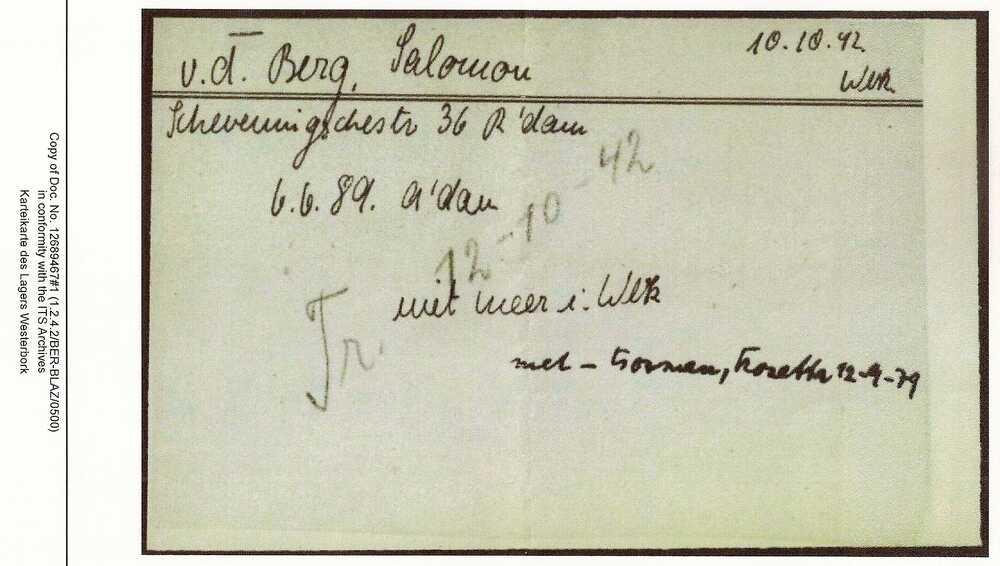 v.d. Berg, Salomon
10.10.42
Wbk.
Scheveningschestr 36 R'dam
6.6.89. A'dam
12-10-42
Tr.
niet meer i. Wbk
met - 12-9-79
Copy of Doc. No. 12689467#1 (1.2.4.2/BER-BLAZ/0500)
in conformity with the ITS Archives
Karteikarte des Lagers Westerbork